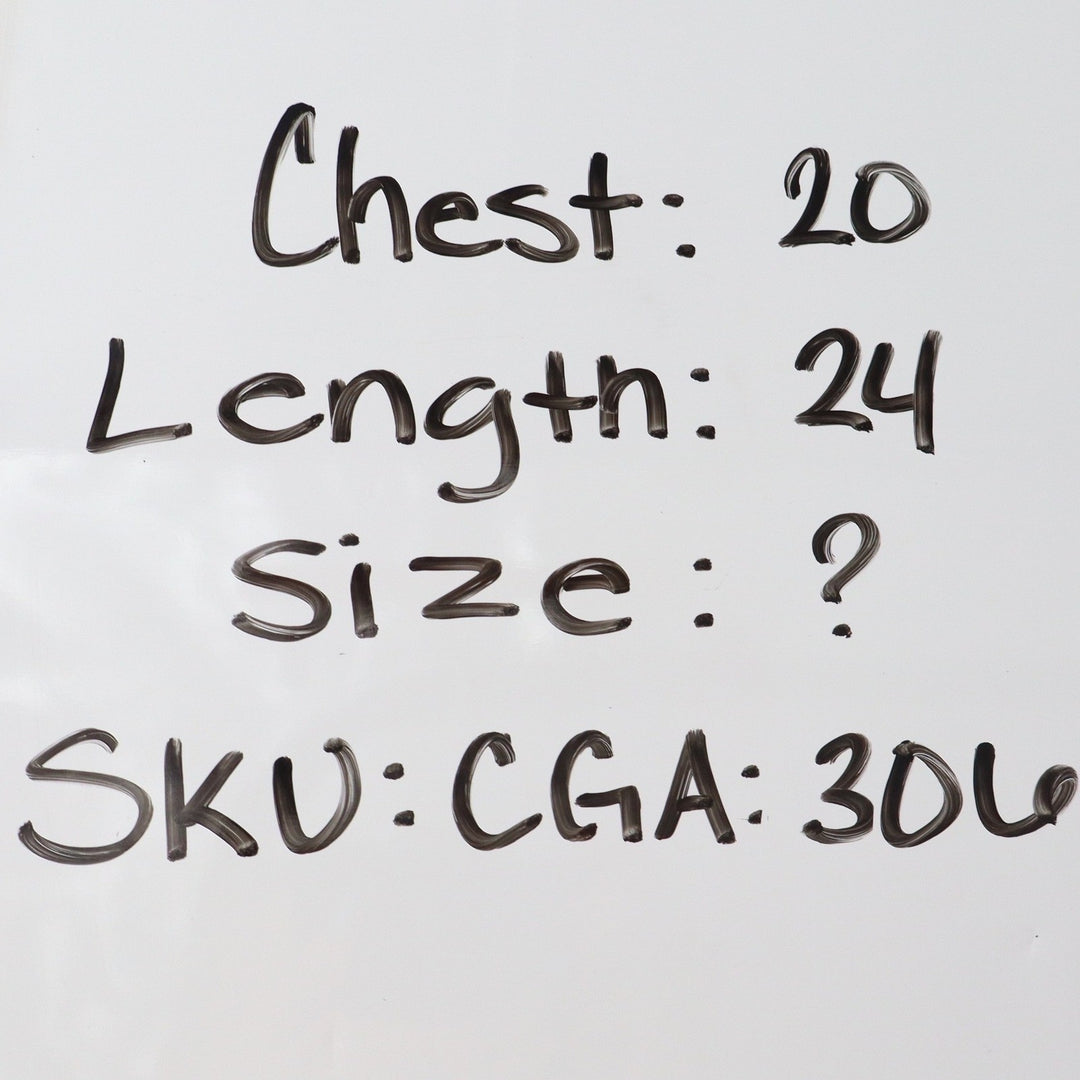 Chest: 20
Length: 24
Size: ?
SKU: CGA: 306